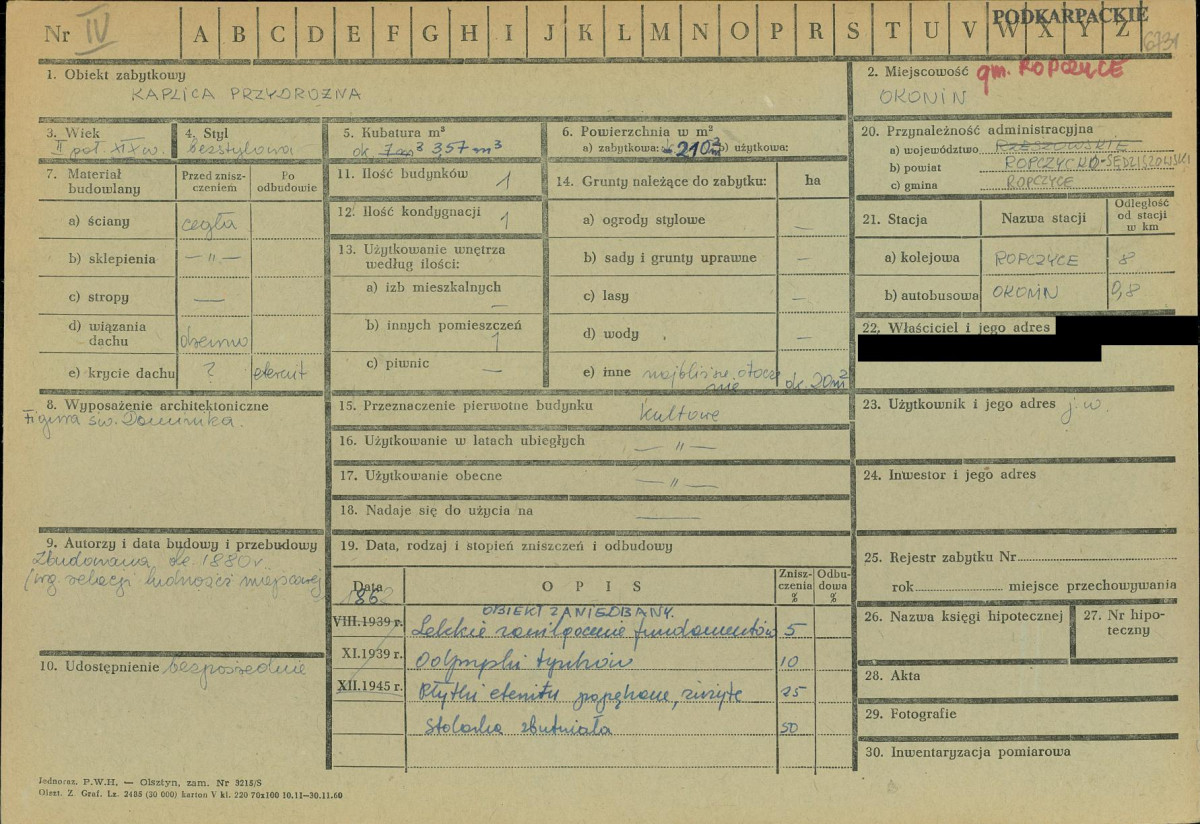 Nr IV A B C D E F G H I J K L M N O P R S T U V W X Y Z
PODKARPACKIE
6731
1. Obiekt zabytkowy
KAPLICA PRZYDROŻNA
2. Miejscowość gm. ROPCZYCE
OKONIN
3. Wiek
II poł. XIX w.
4. Styl
bezstylowa
5. Kubatura m³
ok. 7m³ 3,57 m³
6. Powierzchnia w m²
a) zabytkowa: b) użytkowa:
7. Materiał budowlany
Przed zniszczeniem
Po odbudowie
a) ściany cegła
b) sklepienia — „ —
c) stropy —
d) wiązania dachu drewno
e) krycie dachu ? eternit
8. Wyposażenie architektoniczne
Figura św. Dominika.
9. Autorzy i data budowy i przebudowy
Zbudowana ok. 1880 r
(wg. relacji ludności miejscowej
10. Udostępnienie bezpośrednie
11. Ilość budynków 1
12. Ilość kondygnacji 1
13. Użytkowanie wnętrza
według ilości:
a) izb mieszkalnych —
b) innych pomieszczeń 1
c) piwnic —
14. Grunty należące do zabytku: ha
a) ogrody stylowe —
b) sady i grunty uprawne —
c) lasy —
d) wody —
e) inne najbliższe otocze
nie ok. 20m²
15. Przeznaczenie pierwotne budynku kultowe
16. Użytkowanie w latach ubiegłych — „ —
17. Użytkowanie obecne — „ —
18. Nadaje się do użycia na ——
19. Data, rodzaj i stopień zniszczeń i odbudowy
Data
O P I S
Zniszczenia %
Odbudowa %
1962
OBIEKT ZANIEDBANY.
VIII.1939 r. Lekkie zawilgocenie fundamentów 5
XI.1939 r. Odpryski tynków 10
XII.1945 r. Płytki eternitu popękane, zużyte 25
Stolarka zbutwiała 50
20. Przynależność administracyjna
a) województwo RZESZOWSKIE
b) powiat ROPCZYCKO-SĘDZISZOWSKI
c) gmina ROPCZYCE
21. Stacja
Nazwa stacji
Odległość od stacji w km
a) kolejowa ROPCZYCE 8
b) autobusowa OKONIN 0,8
22. Właściciel i jego adres
23. Użytkownik i jego adres j. w
24. Inwestor i jego adres
25. Rejestr zabytku Nr
rok miejsce przechowywania
26. Nazwa księgi hipotecznej
27. Nr hipoteczny
28. Akta
29. Fotografie
30. Inwentaryzacja pomiarowa
Jednoraz. P.W.H. — Olsztyn, zam. Nr 3215/S
Olszt. Z. Graf. Lz. 2485 (30 000) karton V kl. 220 70x100 10.11—30.11.60